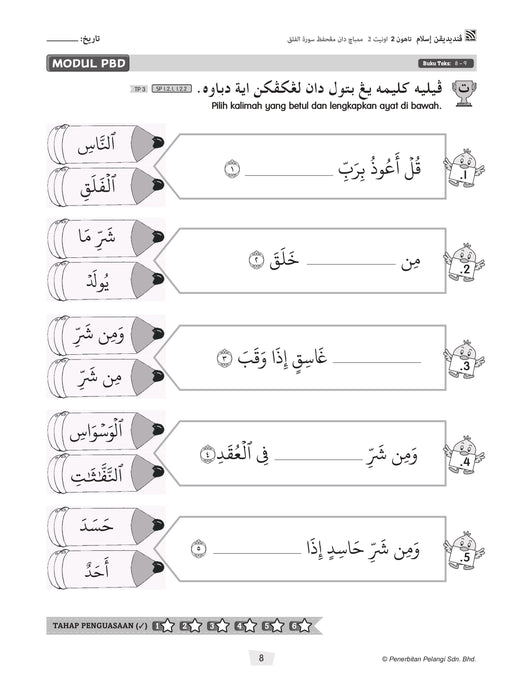 ڤنديديقن إسلام تاهون 2 اونيت 2 ممباچ دان مڠحفظ سورة الفلق
تاريخ: ________
MODUL PBD
Buku Teks: ٨ - ٩
ت
ڤيليه كليمه يڠ بتول دان لڠكڤكن اية دباوه.
TP 3 SP 1.2.1, 1.2.2
Pilih kalimah yang betul dan lengkapkan ayat di bawah.
.1
قُلْ أَعُوذُ بِرَبِّ ________ ١
ٱلنَّاسِ
ٱلْفَلَقِ
.2
مِن ________ خَلَقَ ٢
شَرِّ مَا
يُولَدْ
.3
________ غَاسِقٍ إِذَا وَقَبَ ٣
وَمِن شَرِّ
مِن شَرِّ
.4
وَمِن شَرِّ ________ فِى ٱلْعُقَدِ ٤
ٱلْوَسْوَاسِ
ٱلنَّفَّٰثَٰتِ
.5
وَمِن شَرِّ حَاسِدٍ إِذَا ________ ٥
حَسَدَ
أَحَدٌ
TAHAP PENGUASAAN (✓) 1 2 3 4 5 6
8
© Penerbitan Pelangi Sdn. Bhd.